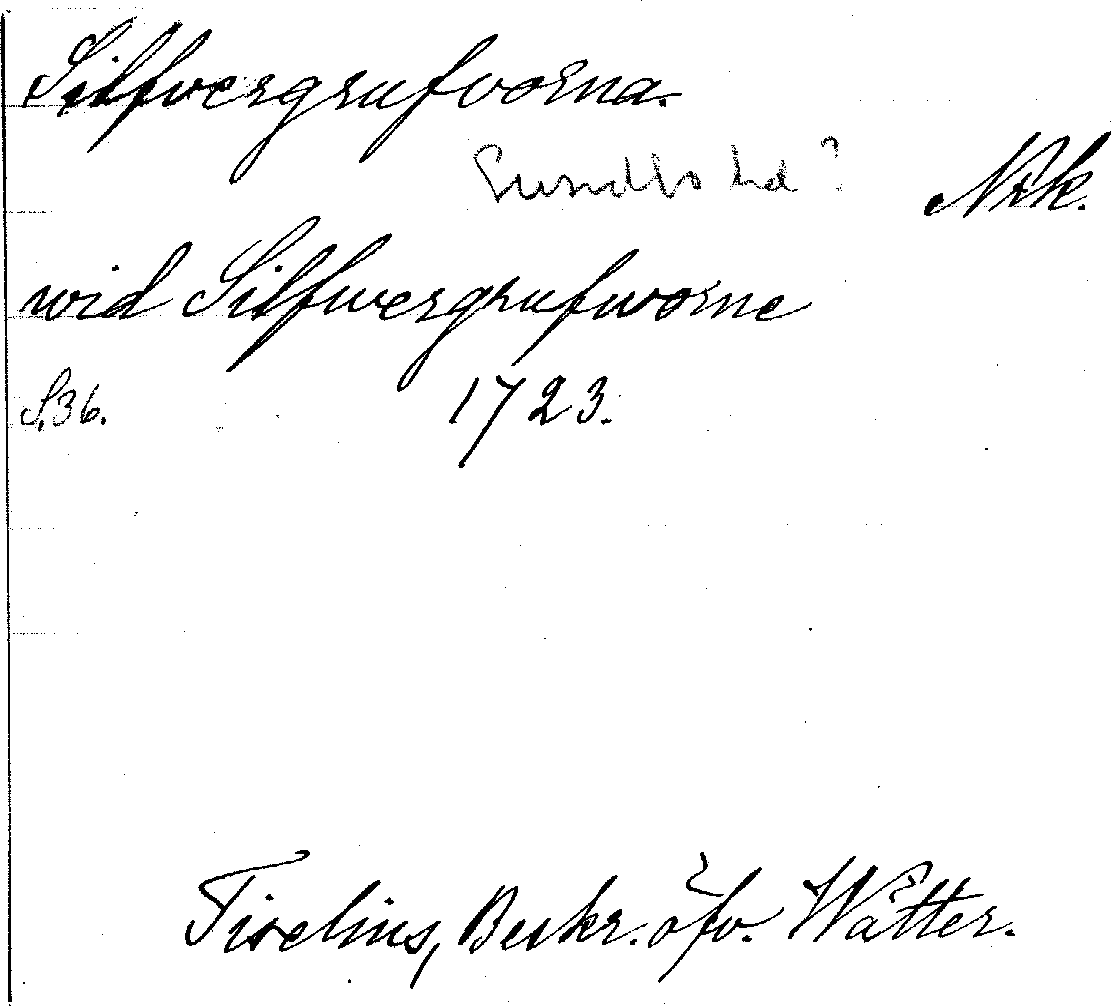 Silfvergrufvorna.
Sundbo hd? Nrk.
wid Silfwergrufworne
S.36. 1723.
Tiselius, Beskr. öfv. Wätter.